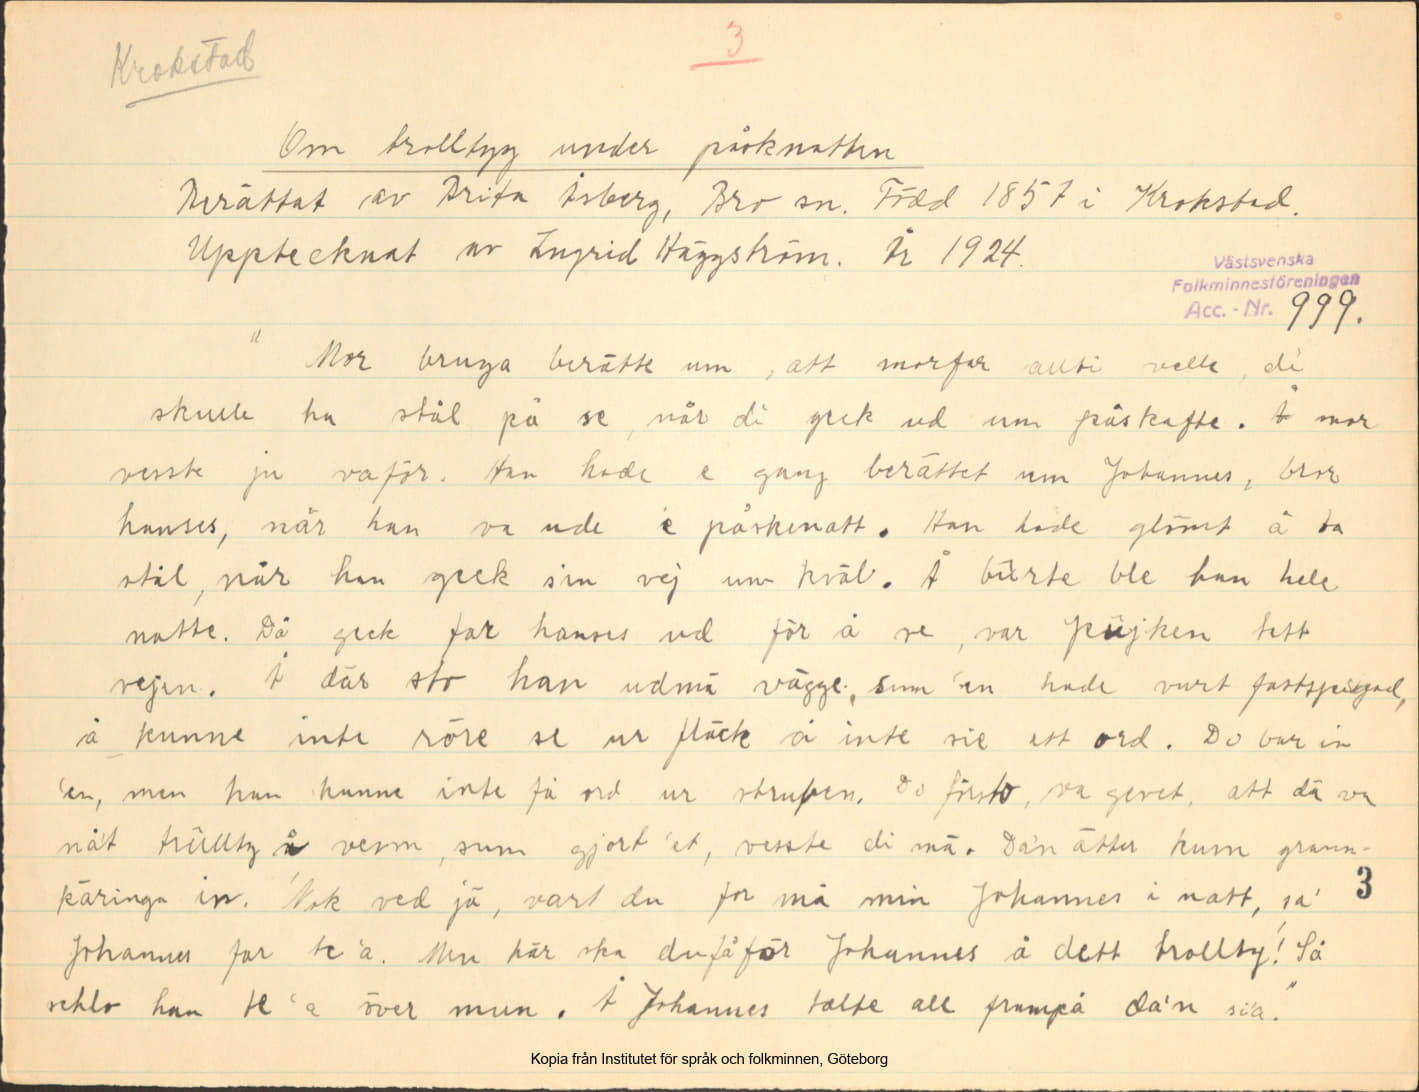 Krokstad
3
Om trolltyg under påsknatten
Berättat av Brita Åsberg, Bro sn. Född 1857 i Krokstad.
Upptecknat av Ingrid Häggström. År 1924.
Västsvenska
Folkminnesföreningen
Acc. - Nr. 999.
" Mor bruga berätte um, att morfar allti velle, di
skulle ha stål på se, når di geck ud um påskafte. Å mor
vesste ju vaför. Han hade e gang berättet um Johannes, bror
hanses, når han va ude e påskenatt. Han hade glömt å ta
stål, når han geck sin vej um kväl. Å bürte ble han hele
natte. Då geck far hanses ud för å se, var püjken tatt
vejen. Å där sto han udmä vägge, sum 'en hade vurt fastspigad,
å kunne inte röre se ur fläck å inte sie ett ord. Do bar in
'en, men han kunne inte få ord ur strupen. Do försto, va gevet, att dä va
nåt trüllty å venn, sum gjort 'et, vesste di mä. Da'n ätter kum grann-
käringa in. 'Nok ved jä, vart du for mä min Johannes i natt, sa'
Johannes far te 'a. Men här ska du få för Johannes å dett trollty!' Så
sehlo han te 'a över mun. Å Johannes talte all frampå da'n sia."
3
Kopia från Institutet för språk och folkminnen, Göteborg